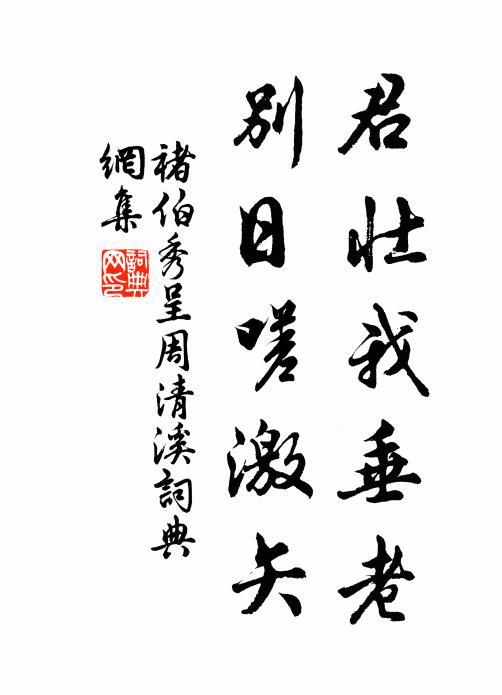 君壮我垂老
别日嗟激矢
褚伯秀呈周清溪詞典
網集
詞典
网印